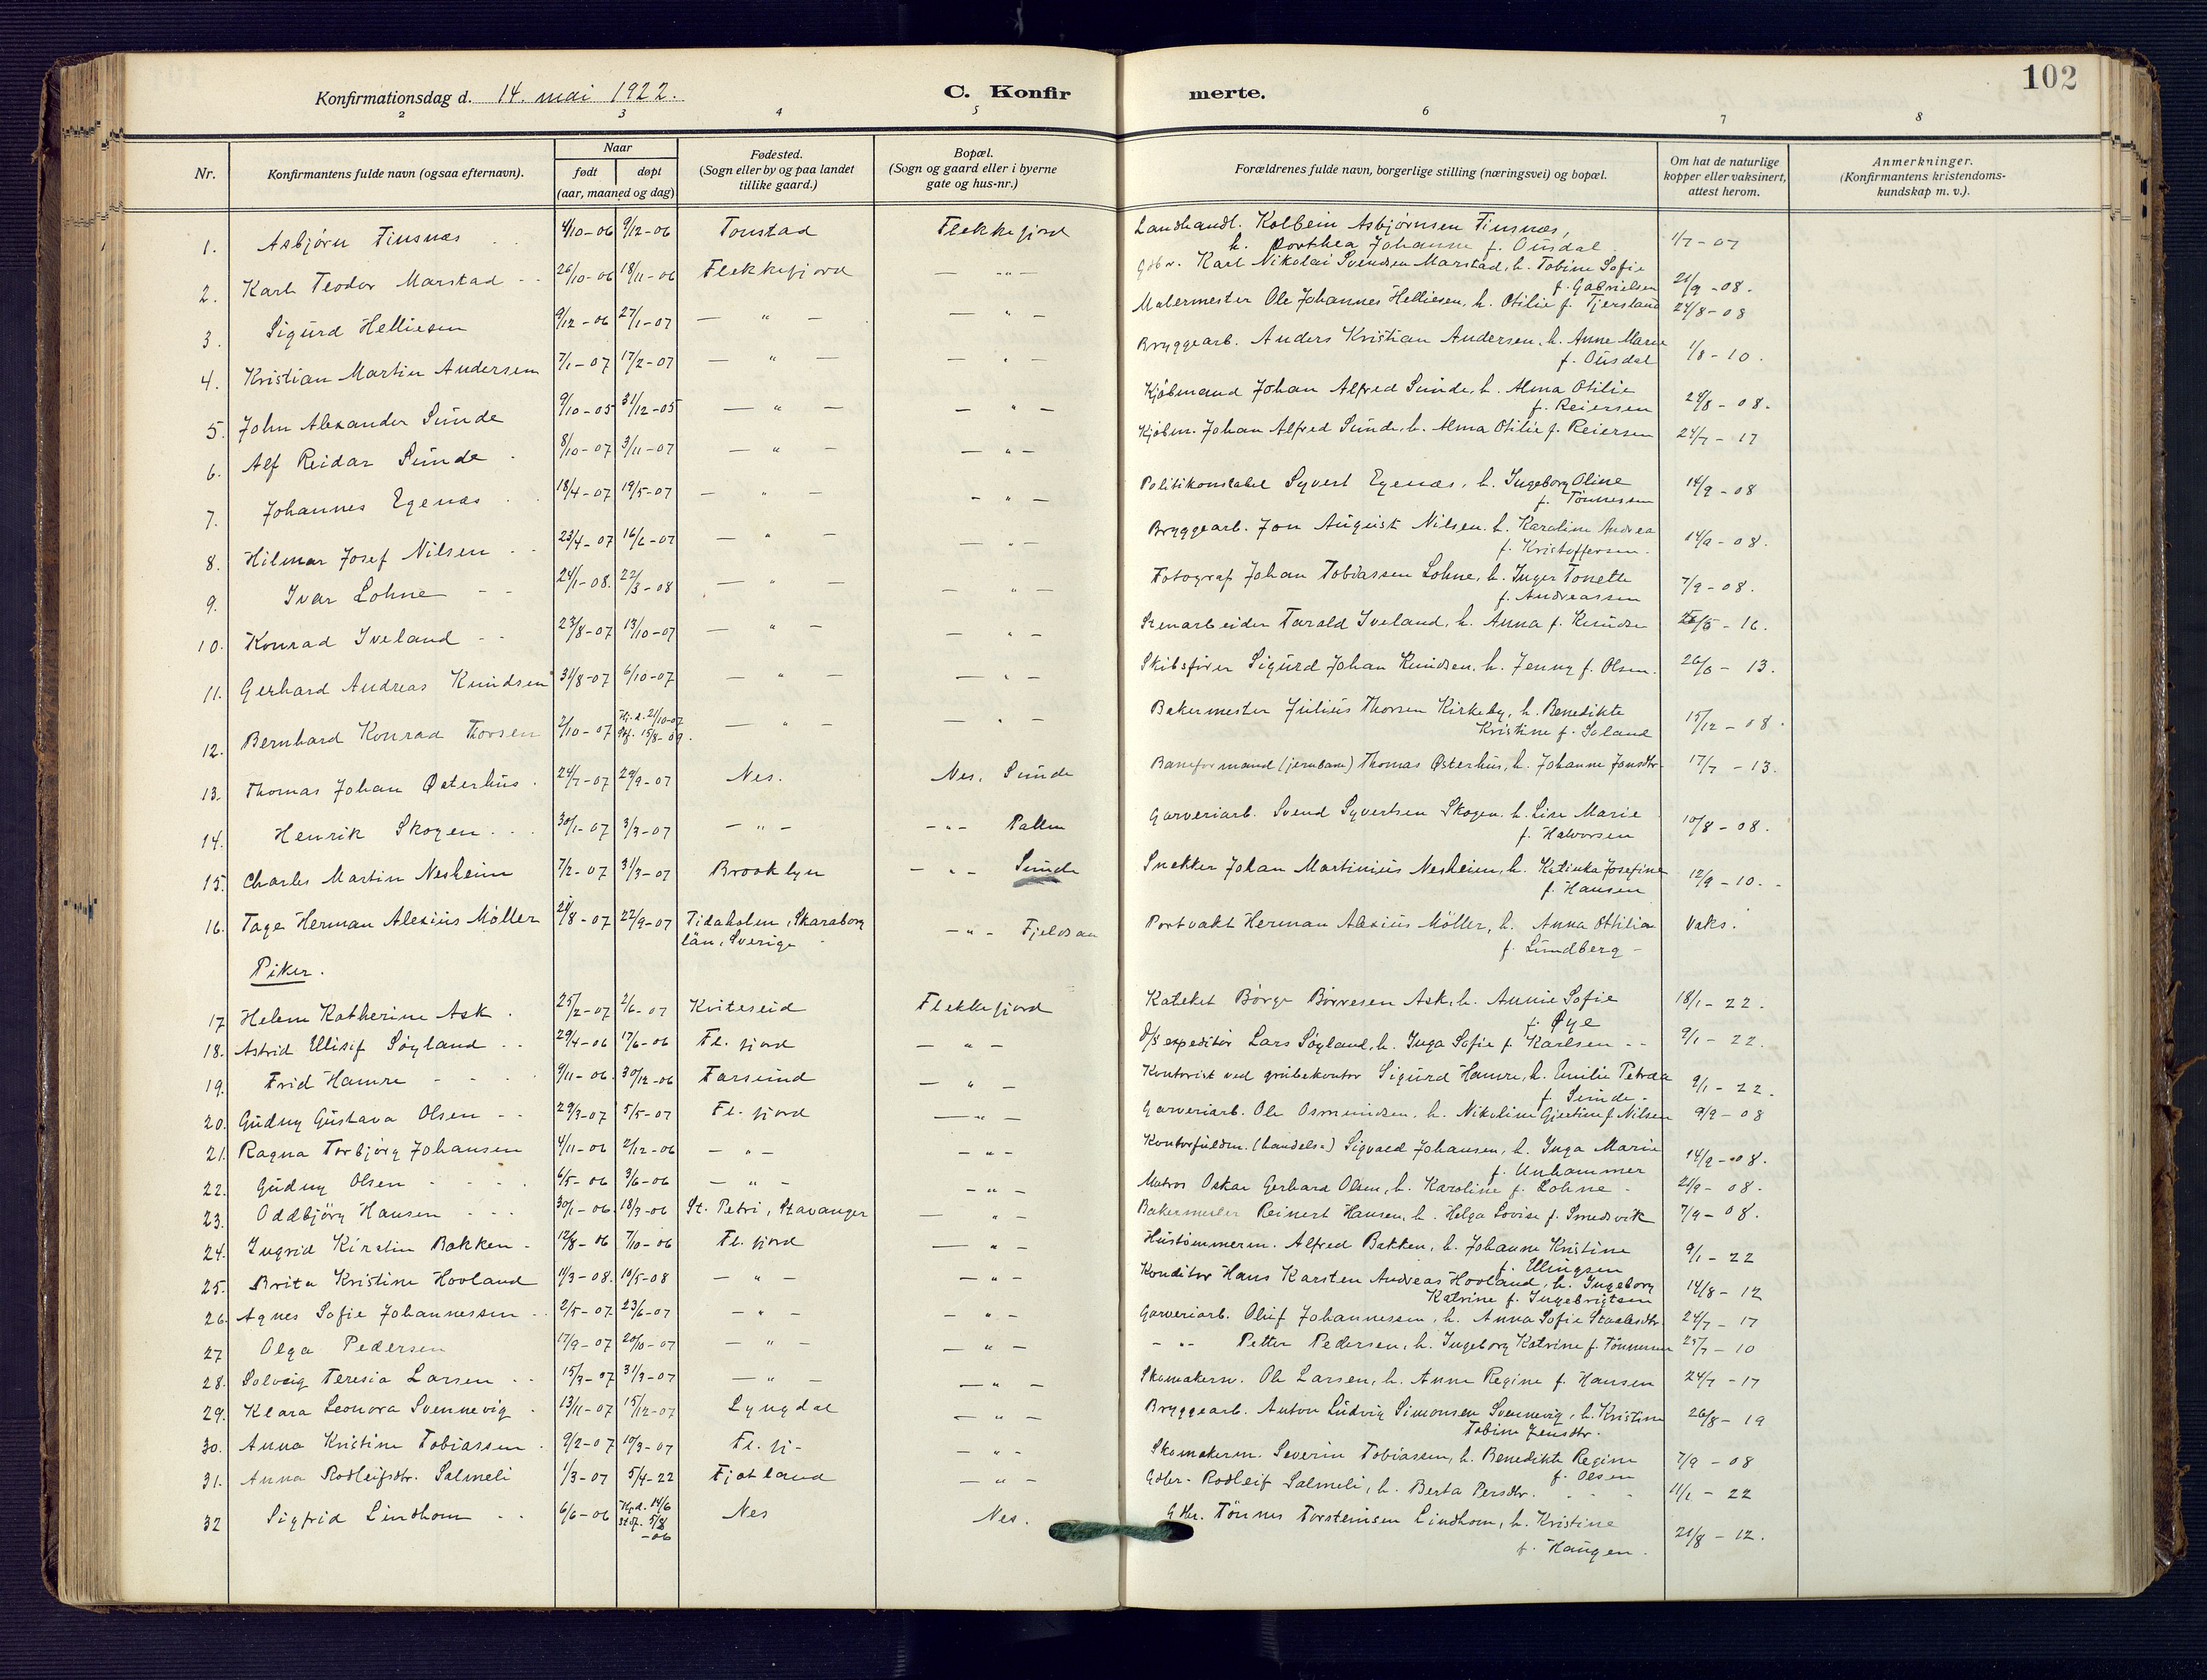 102
Konfirmationsdag d. 14. mai 1922. C. Konfir merte.
2 3 4 5 6 7 8
Nr. Konfirmantens fulde navn (ogsaa efternavn). Naar født døpt (aar, maaned og dag) Fødested. (Sogn eller by og paa landet tillike gaard.) Bopæl. (Sogn og gaard eller i byerne gate og hus-nr.) Forældrenes fulde navn, borgerlige stilling (næringsvei) og bopæl. Om hat de naturlige kopper eller vaksinert, attest herom. Anmerkninger. (Konfirmantens kristendoms-kundskap m. v.).
1. Asbjørn Finsnæs 4/10-06 9/12-06 Tonstad Flekkefjord Landhandl. Kolbein Asbjørnsen Finsnæs, h. Dorthea Johanne f. Ousdal. 1/7-07
2. Karl Teodor Marstad 26/10-06 18/11-06 Flekkefjord — „ — Gdbr. Karl Nikolai Svendsen Marstad, h. Tobine Sofie f. Gabrielsen 21/9-08.
3. Sigurd Helliesen 9/12-06 27/1-07 — „ — — „ — Malermester Ole Johannes Helliesen, h. Otilie f. Tjersland 24/8-08
4. Kristian Martin Andersen 7/1-07 17/2-07 — „ — — „ — Bryggearb. Anders Kristian Andersen, h. Anne Marie f. Ousdal 1/8-10.
5. John Alexander Sunde 9/10-05 31/12-05 — „ — — „ — Kjøbmand Johan Alfred Sunde, h. Alma Otilie f. Reiersen 24/8-08.
6. Alf Reidar Sunde 8/10-07 3/11-07 — „ — — „ — Kjøbm. Johan Alfred Sunde, h. Alma Otilie f. Reiersen 24/7-17
7. Johannes Egenæs 18/4-07 19/5-07 — „ — — „ — Politikonstabel Syvert Egenæs, h. Ingeborg Oline f. Tønnessen 14/9-08
8. Hilmar Josef Nilsen 23/4-07 16/6-07 — „ — — „ — Bryggearb. Jon August Nilsen, h. Karoline Andrea f. Kristoffersen. 14/9-08.
9. Ivar Lohne 24/1-08. 22/3-08 — „ — — „ — Fotograf Johan Tobiassen Lohne, h. Inger Tonette f. Andreassen 7/9-08.
10. Konrad Iveland 23/8-07 13/10-07 — „ — — „ — Stenarbeider Tarald Iveland, h. Anna f. Knudsen /5-16.
11. Gerhard Andreas Knudsen 31/8-07 6/10-07 — „ — — „ — Skibsfører Sigurd Johan Knudsen, h. Jenny f. Olsen. 26/6-13.
12. Bernhard Konrad Thorsen 2/10-07 Hj.d. 21/10-07 Stf. 15/8-09. — „ — — „ — Bakermester Julius Thorsen Kirkeby, h. Benedikte Kristine f. Soland 15/12-08.
13. Thomas Johan Østerhus 24/7-07 29/9-07 Nes. Nes, Sunde Baneformand (jernbane) Thomas Østerhus, h. Johanne Jonsdtr. 17/7-13.
14. Henrik Skogen 30/1-07 3/3-07 — „ — — „ — Pallen Garveriarb. Svend Syvertsen Skogen, h. Lise Marie f. Halvorsen 10/8-08.
15. Charles Martin Nesheim 7/2-07 31/3-07 Brooklyn — „ — Sunde Snekker Johan Martinius Nesheim, h. Katinka Josefine f. Hansen 12/9-10.
16. Tage Herman Alexius Möller 20/8-07 22/9-07 Tidaholm, Skaraborg län, Sverige — „ — Fjeldsaa Portvakt Herman Alexius Möller, h. Anna Othilia f. Lundberg Vaks.
Piker.
17 Helene Katherine Ask 25/2-07 2/6-07 Kviteseid Flekkefjord Kateket Børge Børresen Ask, h. Annie Sofie f. Øye 18/1-22.
18. Astrid Ellisif Søyland 29/4-06 17/6-06 Fl. fjord — „ — D/S expeditør Lars Søyland, h. Inga Sofie f. Karlsen 9/1-22.
19. Frid Hamre 9/11-06. 30/12-06 Farsund — „ — Kontorist ved grubekontor Sigurd Hamre, h. Emilie Petrea f. Sunde. 9/1-22.
20. Gudny Gustava Olsen 29/3-07 5/5-07 Fl. fjord — „ — Garveriarb. Ole Osmundsen, h. Nikoline Gjertine f. Nilsen 9/9-08
21. Ragna Torbjørg Johansen 4/11-06 2/12-06 — „ — — „ — Kontorfuldm. (handels-) Sigvald Johansen, h. Inga Marie f. Unhammer 14/9-08.
22. Gudny Olsen 6/5-06 3/6-06 — „ — — „ — Matros Oskar Gerhard Olsen, h. Karoline f. Lohne 21/9-08.
23. Oddbjörg Hansen 30/1-06. 18/3-06 St. Petri, Stavanger — „ — Bakermester Reinert Hansen, h. Helga Lovise f. Smedsvik 7/9-08.
24. Ingrid Kirstin Bakken 12/8-06 7/10-06 Fl. fjord — „ — Hustømmerm. Alfred Bakken, h. Johanne Kristine f. Ellingsen 9/1-22
25. Brita Kristine Hovland 11/3-08. 10/5-08 — „ — — „ — Konditor Hans Karsten Andreas Hovland, h. Ingeborg Katrine f. Ingebrigtsen 14/8-12
26. Agnes Sofie Johannessen 2/5-07 23/6-07 — „ — — „ — Garveriarb. Oluf Johannessen, h. Anna Sofie Staalesdtr. 24/7-17
27 Olga Pedersen 17/9-07 20/10-07 — „ — — „ — — „ — Petter Pedersen, h. Ingeborg Katrine f. Tönnesen 25/7-10
28. Solveig Teresia Larsen 15/3-07 31/3-07 — „ — — „ — Skomakerm. Ole Larsen, h. Anne Regine f. Hansen 24/7-17
29. Klara Leonora Svennevig 13/11-07 15/12-07 Lyngdal — „ — Bryggearb. Anton Ludvig Simonsen Svennevig, h. Kristine Tobine Jensdtr. 26/8-19
30. Anna Kristine Tobiassen 9/2-07 10/3-07 Fl. fj- — „ — Skomakerm. Severin Tobiassen, h. Benedikte Regine f. Olsen 7/9-08
31. Anna Rodleifsdtr. Salmeli 1/3-07 5/4-22 Fjotland — „ — Gdbr. Rodleif Salmeli, h. Berta Persdtr. 11/1-22
32 Sigfrid Lindhom 6/6-06 Hj.d. 14/6 st.f. 5/8-06 Nes Nes. Gdbr. Tönnes Torsteinsen Lindhom, h. Kristine f. Haugen. 21/8-12.